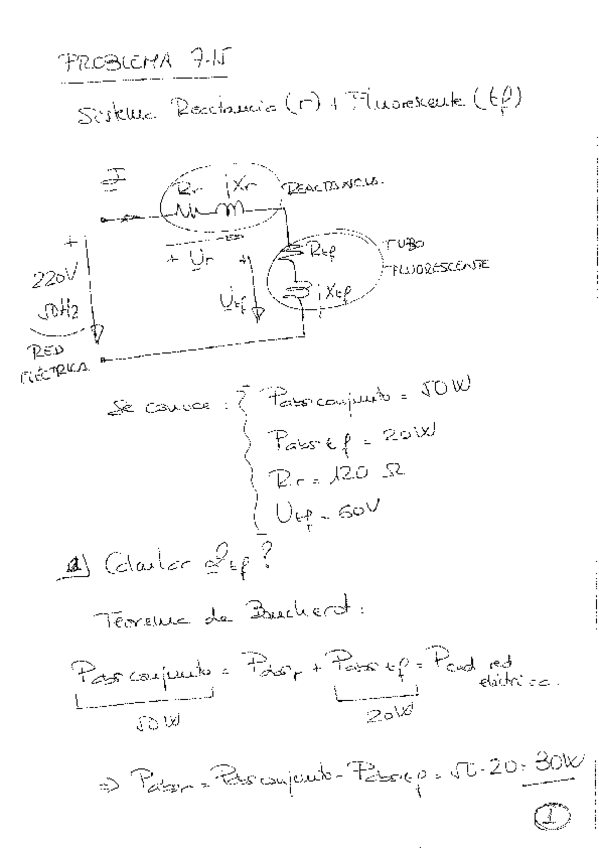 PROBLEMA 7.15
Sistema Reactancia (r) + Fluorescente (tf)
I
Rr jXr REACTANCIA.
+ Ur
+
220V
50Hz
RED
ELÉCTRICA
+
Utf
Rtf
jXtf
TUBO
FLUORESCENTE
Se conoce : { Pabs conjunto = 50W
Pabs tf = 20W
Rr = 120 Ω
Utf = 60V
a) Calcular Qtf?
Teorema de Boucherot:
Pabs conjunto = Pabs r + Pabs tf = Pced red
eléctrica.
50W 20W
⇒ Pabs r = Pabs conjunto - Pabs tf = 50 - 20 = 30W
1